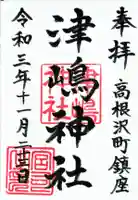 奉拝
高根沢町鎮座
津嶋神社
令和三年十一月二十三日